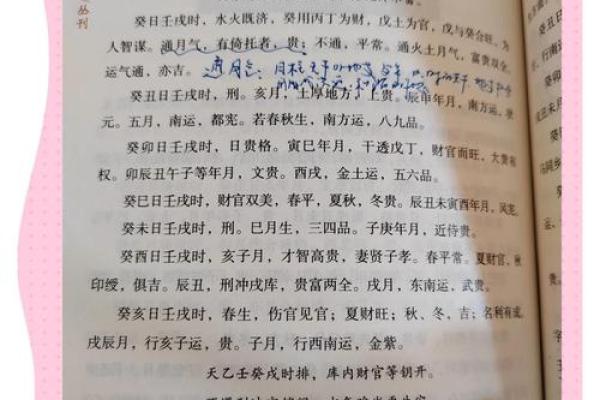 丛刊
癸日壬戌时,水火既济,癸用丙丁为财,戊土为官,戊与癸合旺,为
人智谋。通月气,有倚托者,贵;不通,平常。通火土月气,富贵双全。
运气通,亦吉。
通月气:
癸丑日壬戌时,刑。亥月,土厚地方,上贵。辰申年月,南方运,使
元。五月,南运,都宪。若春秋生,南方运,八九品。
癸卯日壬戌时,日贵格。寅巳年月,干透戊丁,财官而旺,大贵有
权。卯辰丑午子等年月,文贵。酉戌,金土运,五六品。
癸巳日壬戌时,财官双美,春平,夏秋,冬贵。辰丑未寅酉年月,风宪。
癸未日壬戌时,刑。巳月生,三四品。子庚年月,近侍贵。
癸酉日壬戌时,亥子月,才智高贵,妻贤子孝。春平常。夏财官,秋
印绶,俱吉。辰丑,刑冲戌库,贵富两全。戌月,东南运,武贵。
癸亥日壬戌时,春生,伤官见官;夏财旺;秋、冬,吉;名利有成。
戌辰月,行亥子运,贵。子月,行西南运,金紫。
天乙壬癸戌时排,库内财官等钥开。